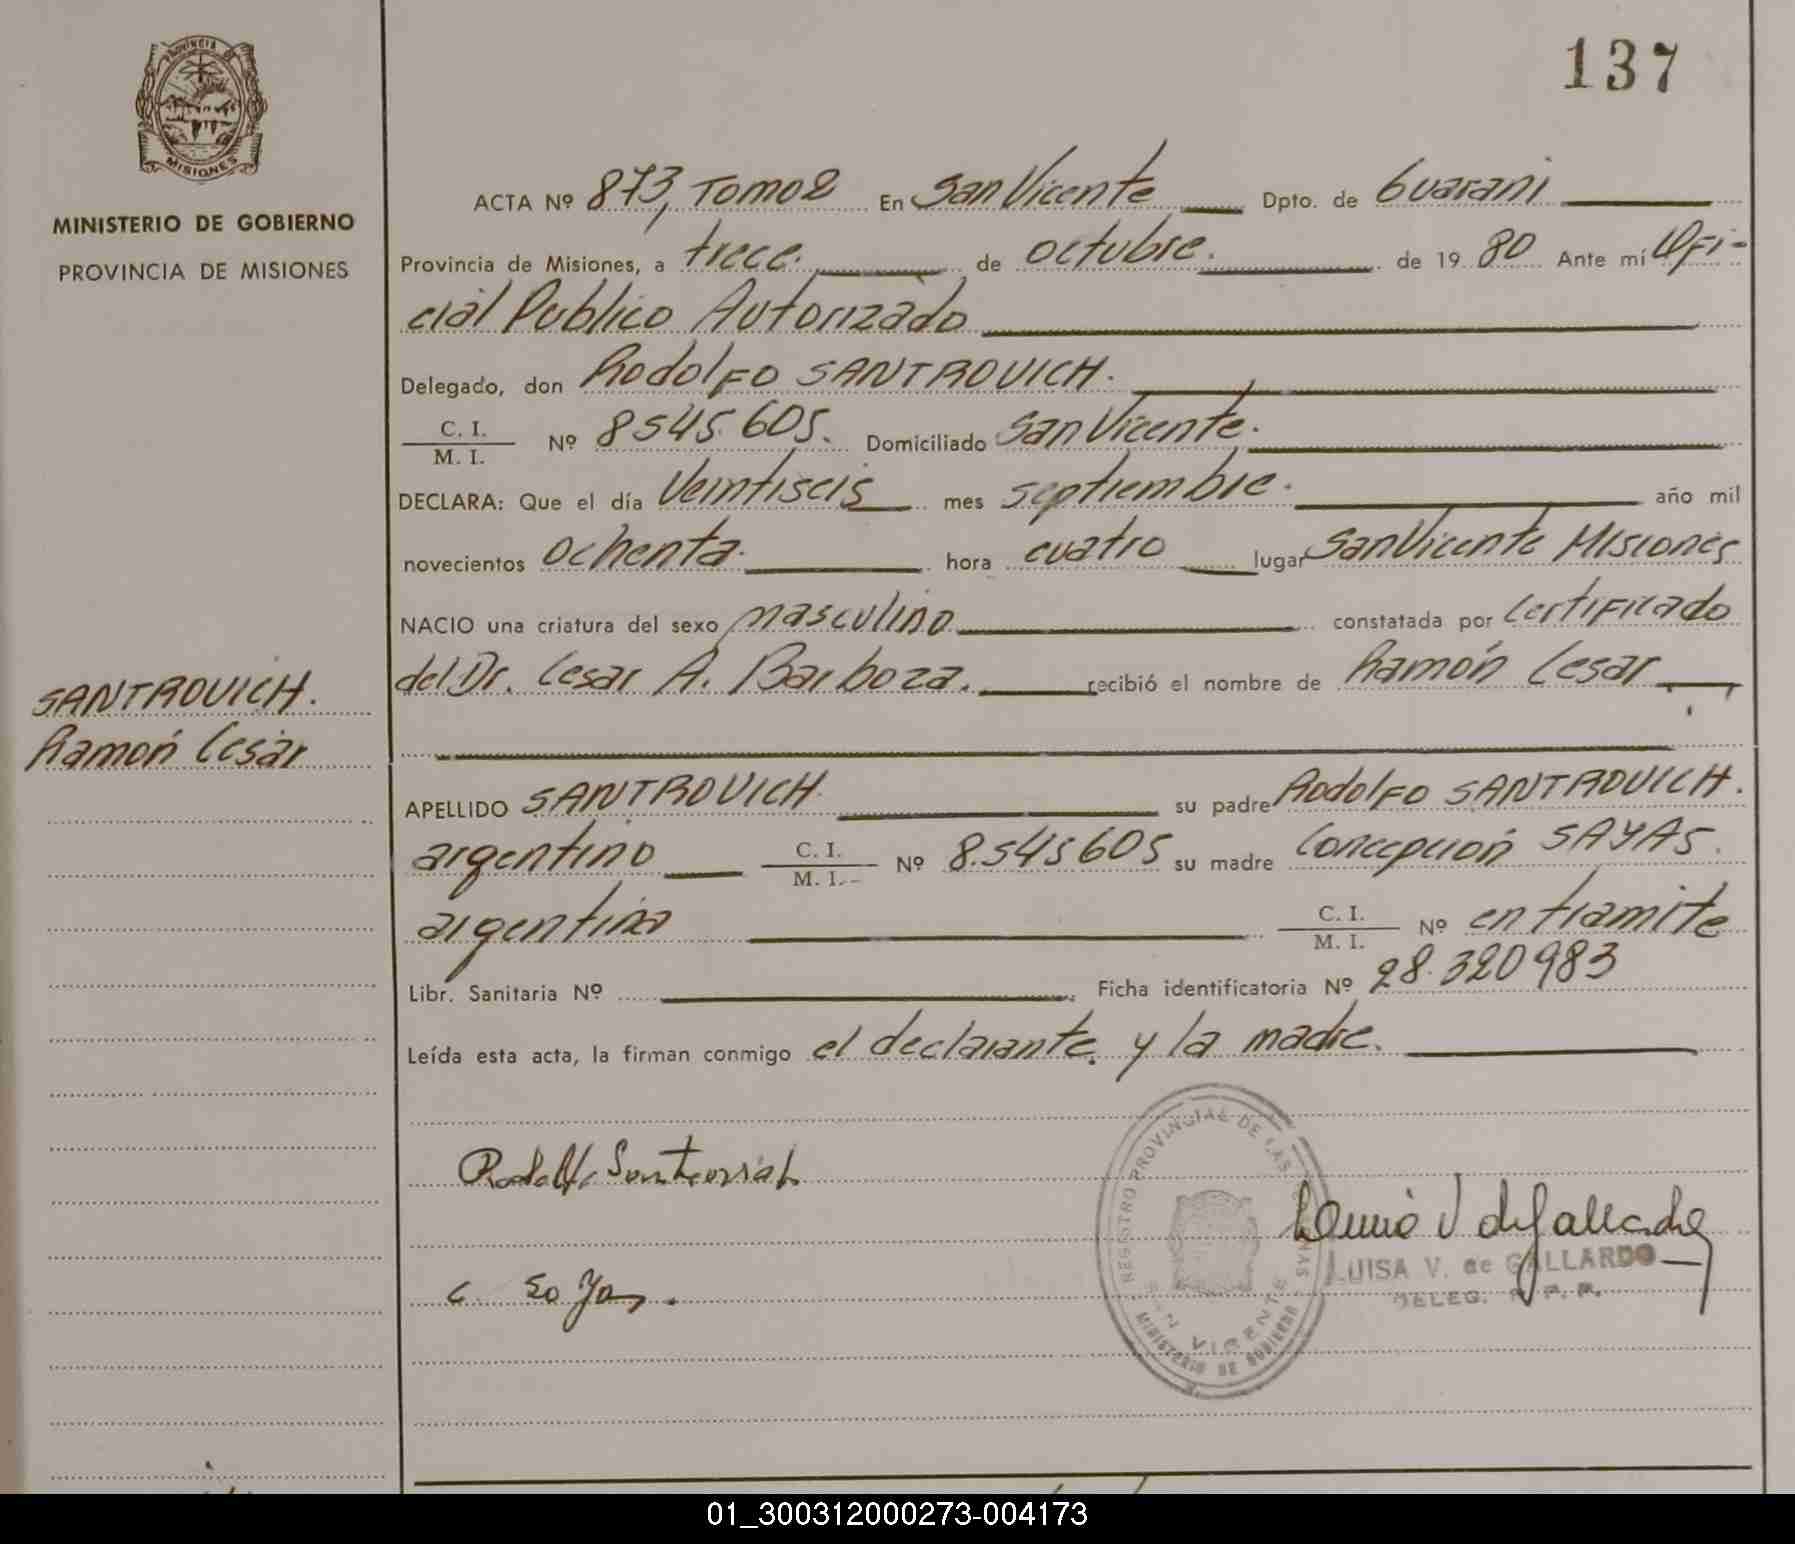 137
PROVINCIA DE
MISIONES
MINISTERIO DE GOBIERNO
PROVINCIA DE MISIONES
ACTA Nº 873, Tomo 2 En San Vicente Dpto. de Guarani
Provincia de Misiones, a trece. de octubre. de 19 80 Ante mí Ofi-
cial Publico Autorizado
Delegado, don Rodolfo SANTROVICH.
C. I.
M. I.
Nº 8545.605. Domiciliado San Vicente.
DECLARA: Que el día Veintiseis mes septiembre. año mil
novecientos ochenta. hora cuatro lugar San Vicente Misiones
NACIO una criatura del sexo masculino constatada por certificado
del Dr. Cesar A. Barboza. recibió el nombre de Ramón Cesar
SANTROVICH.
Ramón Cesar
APELLIDO SANTROVICH su padre Rodolfo SANTROVICH.
argentino C. I.
M. I.- Nº 8.545605 su madre Concepción SAYAS.
argentina C. I.
M. I. Nº en tramite
Libr. Sanitaria Nº Ficha identificatoria Nº 28.320983
Leída esta acta, la firman conmigo el declarante. y la madre.
REGISTRO PROVINCIAL DE LAS PERSONAS
SAN VICENTE
MINISTERIO DE GOBIERNO
Rodolfo Santrovich
C. Sayas.
Luisa V de Gallardo
LUISA V. de GALLARDO
DELEG. R. P. P.
01_300312000273-004173